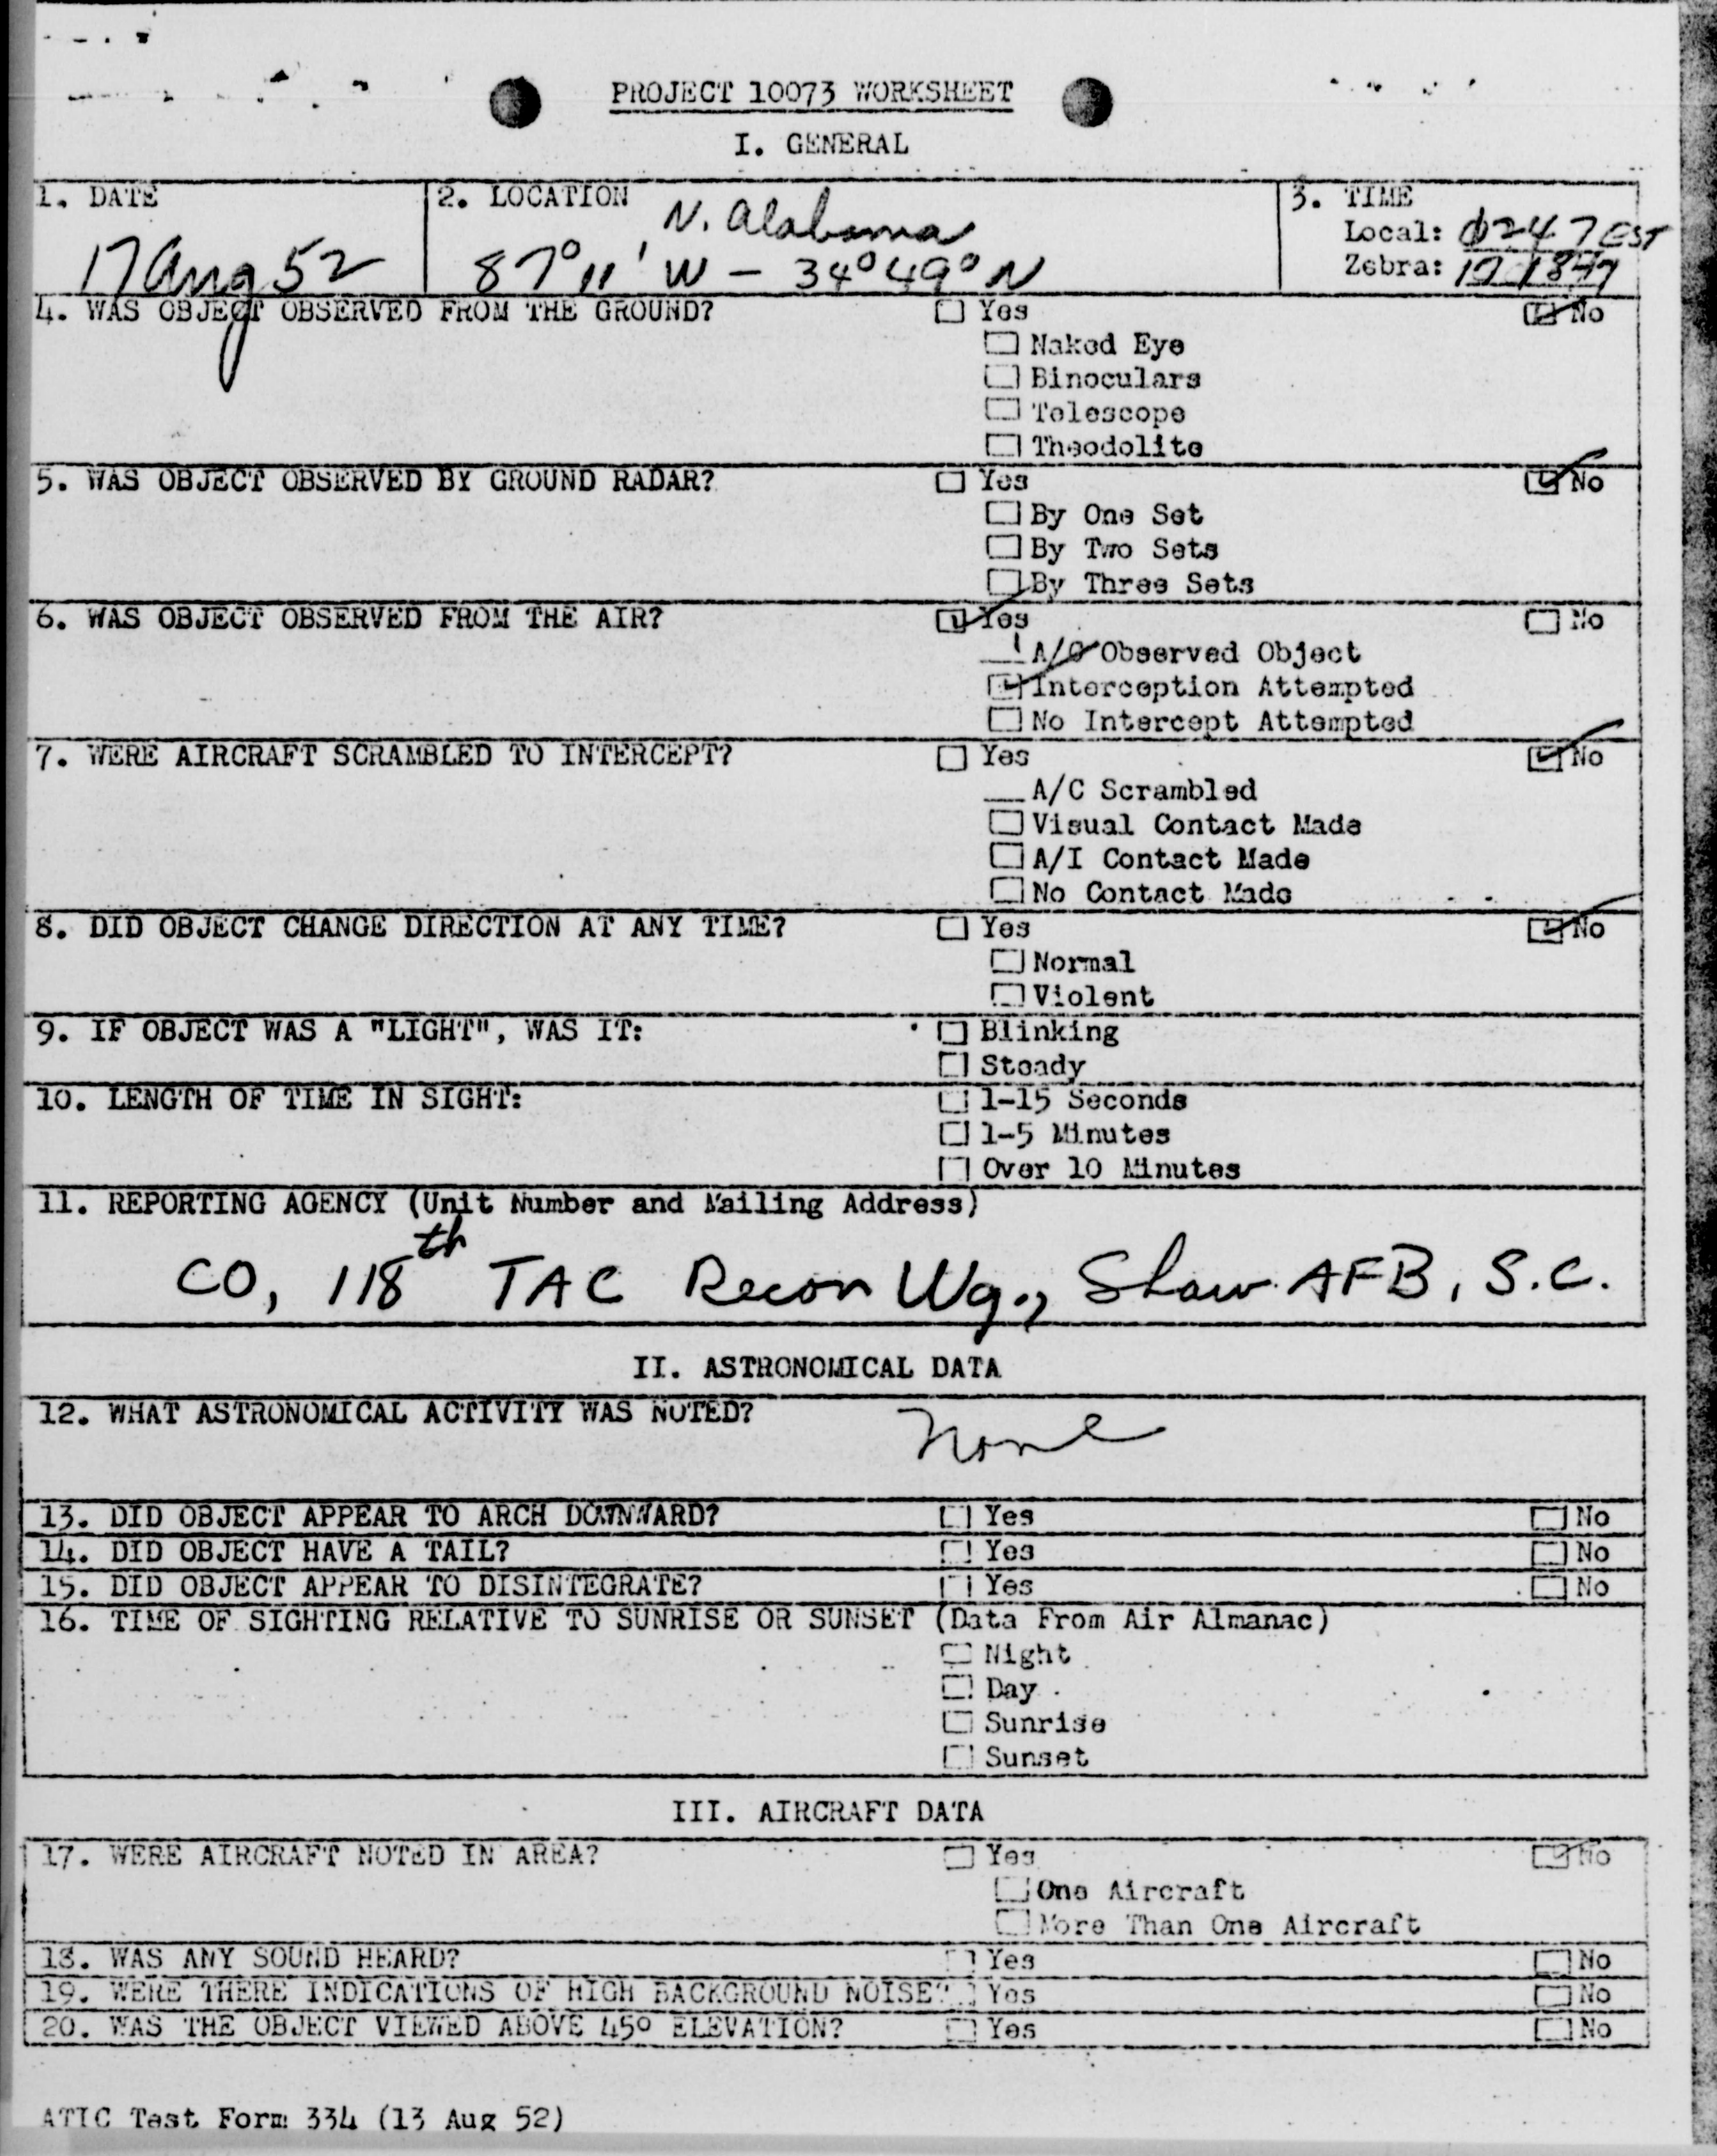 PROJECT 10073 WORKSHEET
I. GENERAL
1. DATE
17 Aug 52
2. LOCATION
N. Alabama
87° 11' W - 34° 49° N
3. TIME
Local: 0247 EST
Zebra:
4. WAS OBJECT OBSERVED FROM THE GROUND? Yes No
Naked Eye
Binoculars
Telescope
Theodolite
5. WAS OBJECT OBSERVED BY GROUND RADAR? Yes No
By One Set
By Two Sets
By Three Sets
6. WAS OBJECT OBSERVED FROM THE AIR? Yes No
1 A/C Observed Object
Interception Attempted
No Intercept Attempted
7. WERE AIRCRAFT SCRAMBLED TO INTERCEPT? Yes No
A/C Scrambled
Visual Contact Made
A/I Contact Made
No Contact Made
8. DID OBJECT CHANGE DIRECTION AT ANY TIME? Yes No
Normal
Violent
9. IF OBJECT WAS A "LIGHT", WAS IT: Blinking
Steady
10. LENGTH OF TIME IN SIGHT: 1-15 Seconds
1-5 Minutes
Over 10 Minutes
11. REPORTING AGENCY (Unit Number and Mailing Address)
CO, 118th TAC Recon Wg., Shaw AFB, S.C.
II. ASTRONOMICAL DATA
12. WHAT ASTRONOMICAL ACTIVITY WAS NOTED? None
13. DID OBJECT APPEAR TO ARCH DOWNWARD? Yes No
14. DID OBJECT HAVE A TAIL? Yes No
15. DID OBJECT APPEAR TO DISINTEGRATE? Yes No
16. TIME OF SIGHTING RELATIVE TO SUNRISE OR SUNSET (Data From Air Almanac)
Night
Day
Sunrise
Sunset
III. AIRCRAFT DATA
17. WERE AIRCRAFT NOTED IN AREA? Yes No
One Aircraft
More Than One Aircraft
18. WAS ANY SOUND HEARD? Yes No
19. WERE THERE INDICATIONS OF HIGH BACKGROUND NOISE? Yes No
20. WAS THE OBJECT VIEWED ABOVE 45° ELEVATION? Yes No
ATIC Test Form 334 (13 Aug 52)